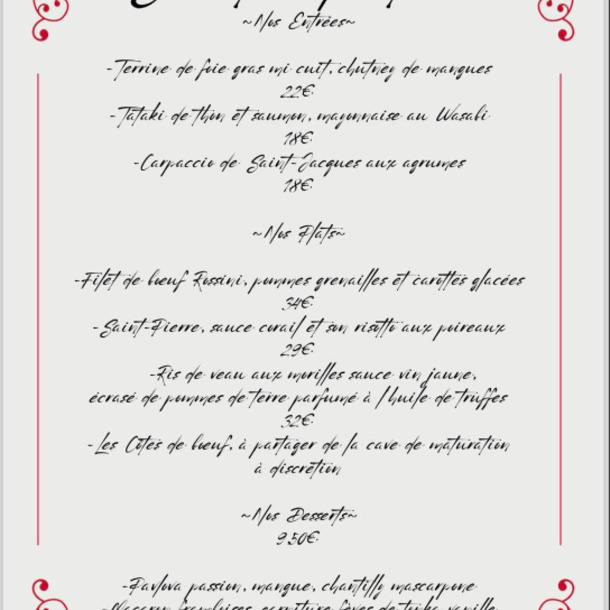 ~Nos Entrées~
-Terrine de foie gras mi cuit, chutney de mangues
22€
-Tataki de thon et saumon, mayonnaise au Wasabi
18€
-Carpaccio de Saint-Jacques aux agrumes
18€
~Nos Plats~
-Filet de bœuf Rossini, pommes grenailles et carottes glacées
34€
-Saint-Pierre, sauce corail et son risotto aux poireaux
29€
-Ris de veau aux morilles sauce vin jaune,
écrasé de pommes de terre parfumé à l huile de truffes
32€
-Les Côtes de bœuf, à partager de la cave de maturation
à discrétion
~Nos Desserts~
9.50€
-Pavlova passion, mangue, chantilly mascarpone